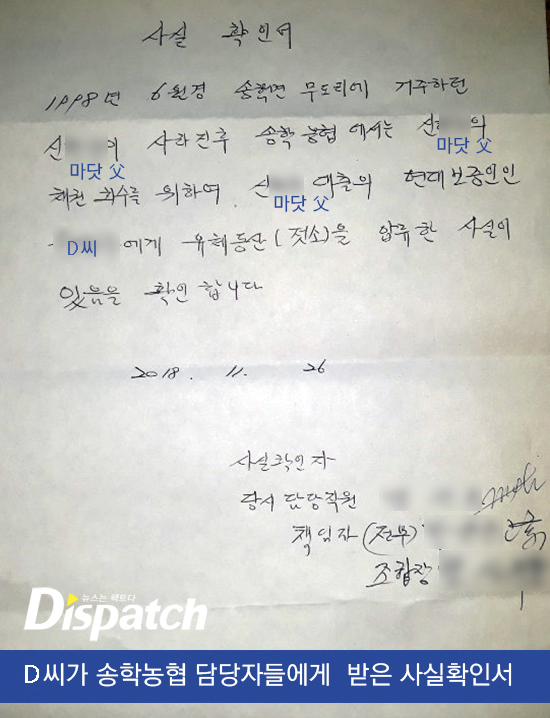 사실 확인서
1998년 6월경 송학면 무도리에 거주하던
신 이 사라진후 송학 농협에서는 신 의
마닷 父 마닷 父
채권 회수를 위하여. 신 대출의 연대보증인인
마닷 父
D씨 에게 유체동산(젖소)을 압류한 사실이
있음을 확인 합니다
2018. 11. 26
사실확인자
당시 담당직원
책임자(전무)
조합장
뉴스는 팩트다
Dispatch
D씨가 송학농협 담당자들에게 받은 사실확인서